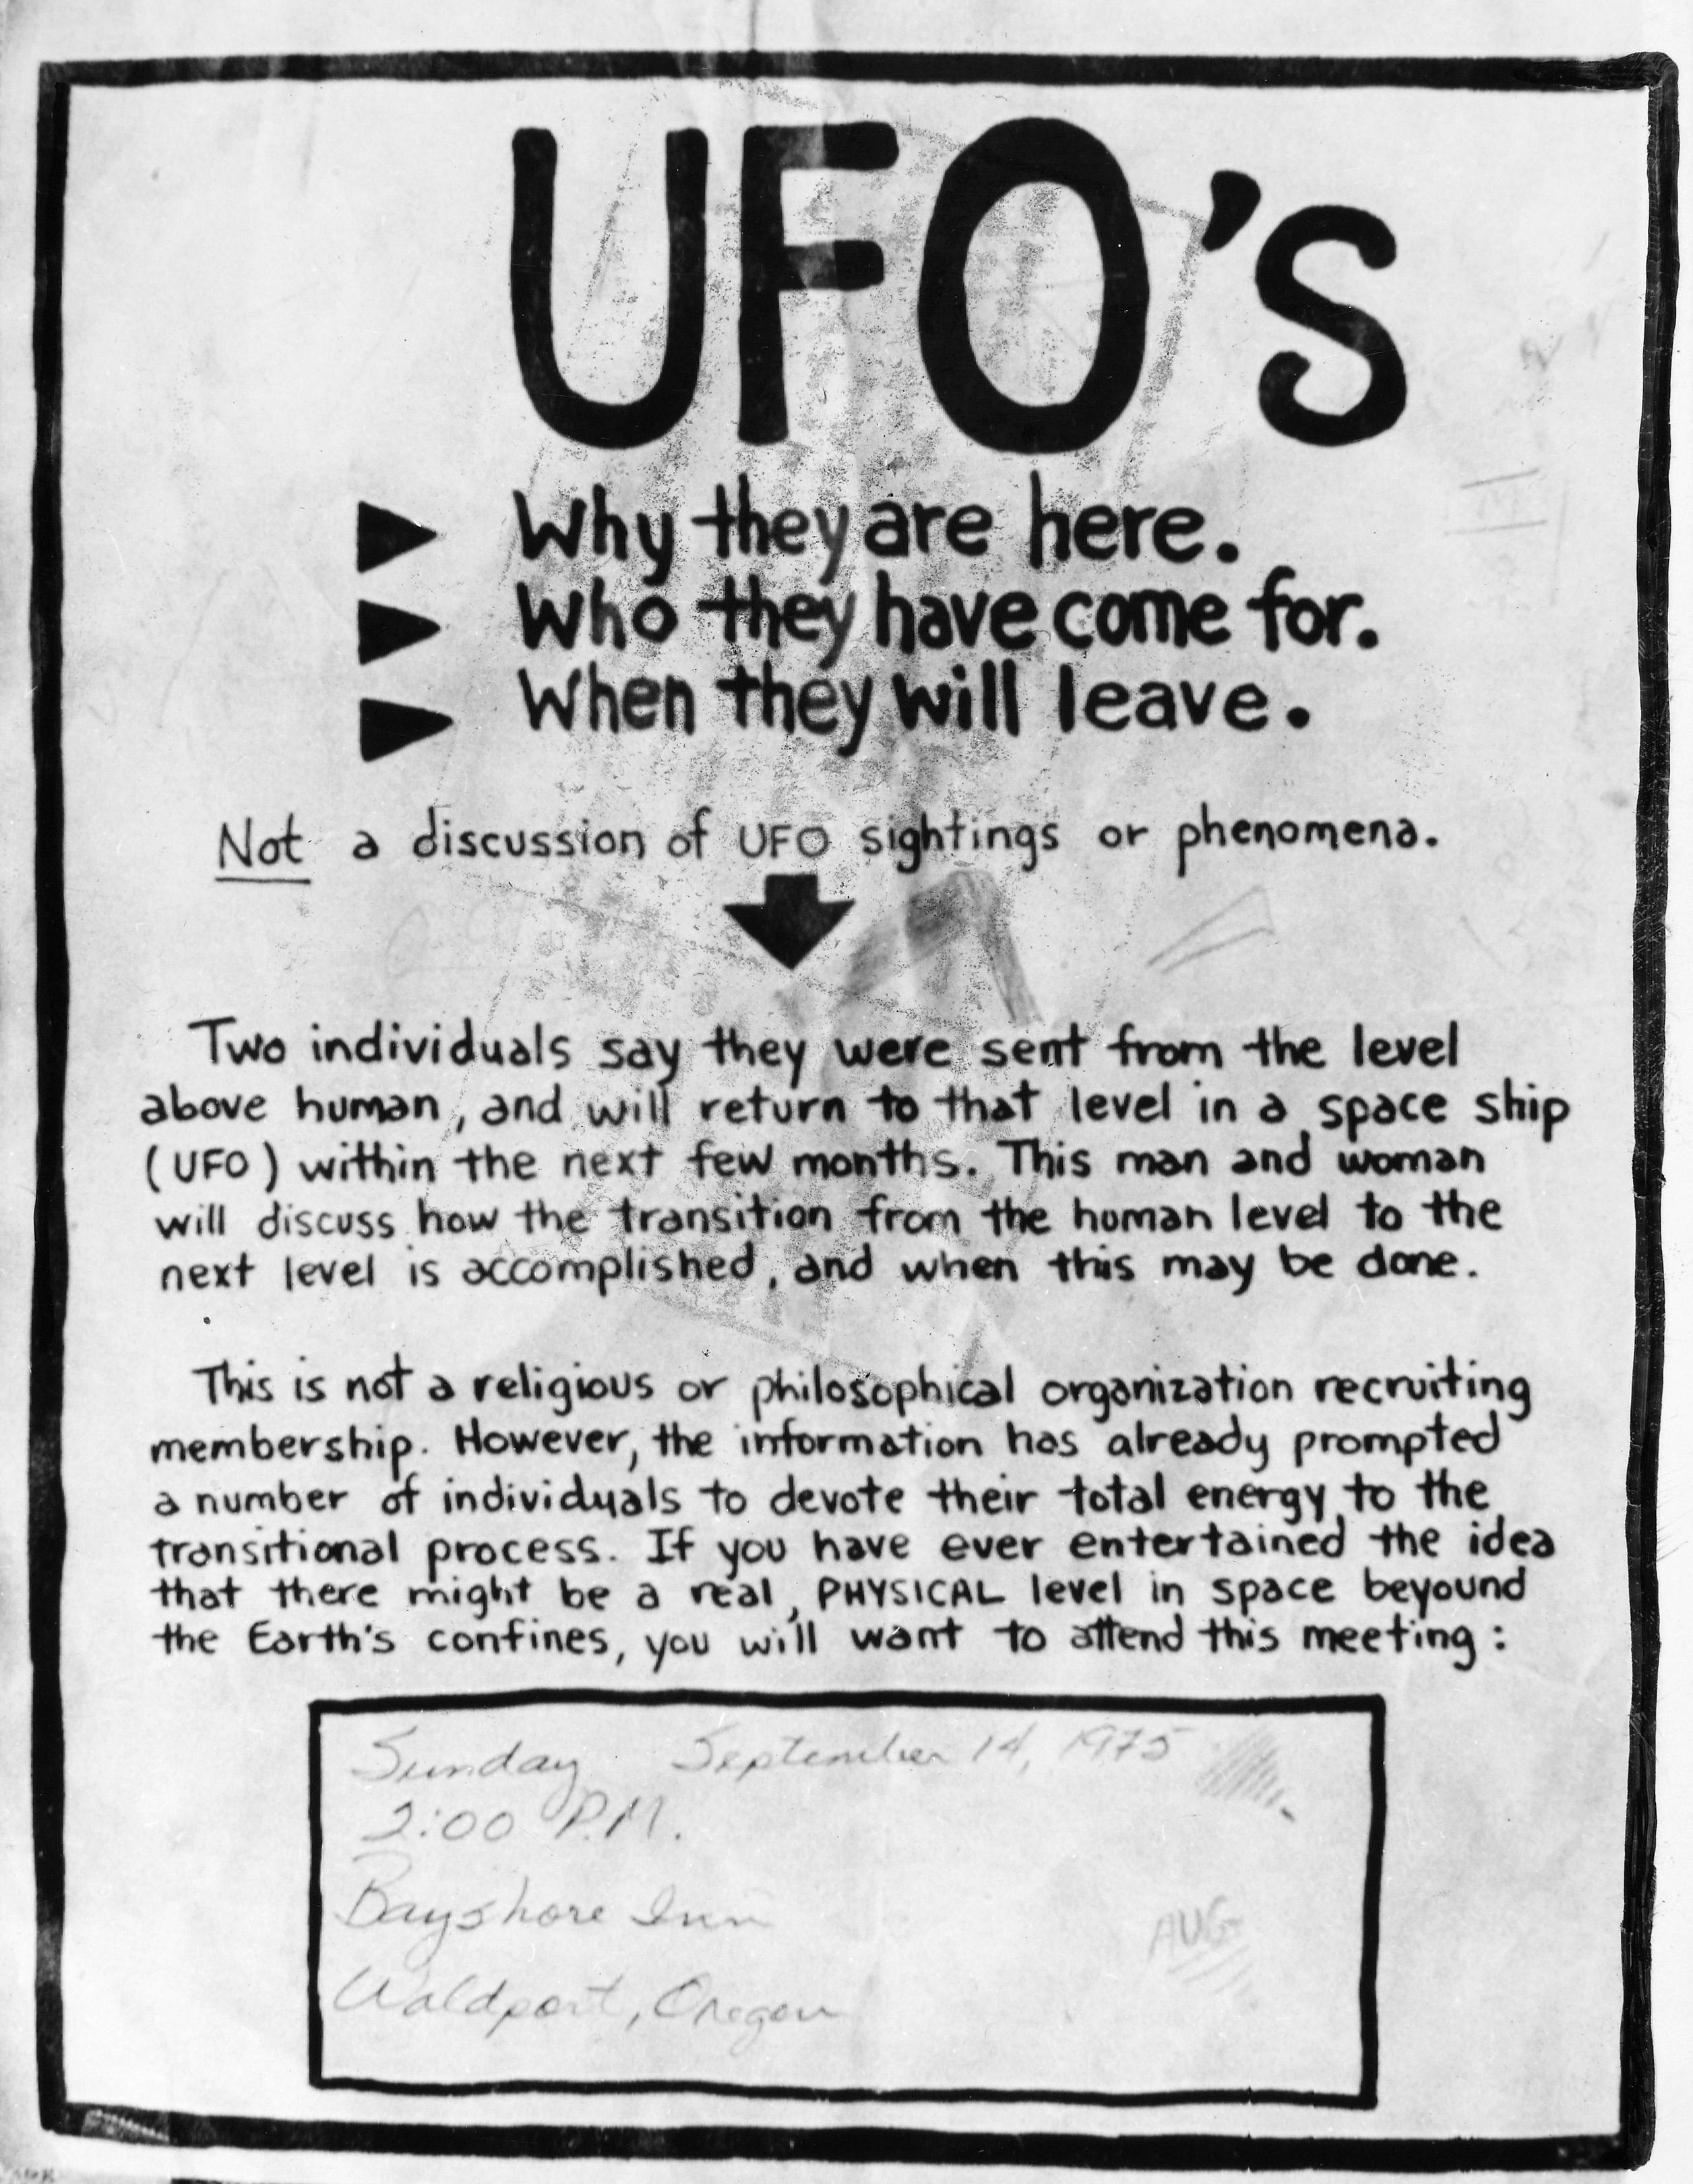 UFO's
Why they are here.
Who they have come for.
When they will leave.
Not a discussion of UFO sightings or phenomena.
Two individuals say they were sent from the level
above human, and will return to that level in a space ship
(UFO) within the next few months. This man and woman
will discuss how the transition from the human level to the
next level is accomplished, and when this may be done.
This is not a religious or philosophical organization recruiting
membership. However, the information has already prompted
a number of individuals to devote their total energy to the
transitional process. If you have ever entertained the idea
that there might be a real, PHYSICAL level in space beyound
the Earth's confines, you will want to attend this meeting:
Sunday September 14, 1975
2:00 P.M.
Bayshore Inn
AUG
Waldport, Oregon